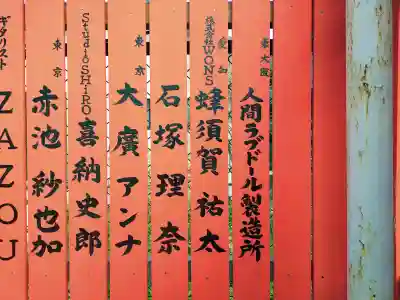 東大阪
人間ラブドール製造所
愛知
株式会社WONS
蜂須賀 祐太
石塚 理奈
東京
大廣 アンナ
StudioSHIRO
喜納 史郎
東京
赤池 紗也加
ギタリスト
ZAZOU